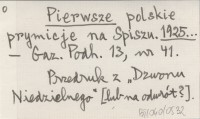 Pierwsze polskie
prymicje na Spiszu. 1925...
- Gaz. Podh. 13, nr 41.
Przedruk z „Dzwonu
Niedzielnego" [lub na odwrót?].